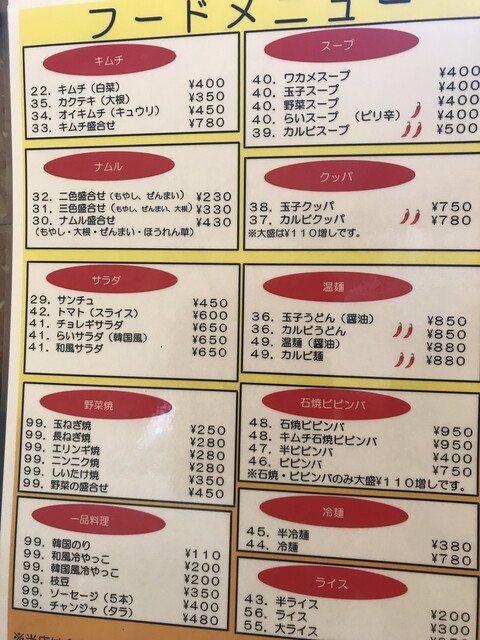 フードメニュー
キムチ
22．キムチ（白菜） ¥400
35．カクテキ（大根） ¥350
34．オイキムチ（キュウリ） ¥450
33．キムチ盛合せ ¥780
ナムル
32．二色盛合せ（もやし、ぜんまい） ¥230
31．三色盛合せ（もやし、ぜんまい、大根） ¥330
30．ナムル盛合せ ¥430
（もやし・大根・ぜんまい・ほうれん草）
サラダ
29．サンチュ ¥450
42．トマト（スライス） ¥600
41．チョレギサラダ ¥650
41．らいサラダ（韓国風） ¥650
41．和風サラダ ¥650
野菜焼
99．玉ねぎ焼 ¥250
99．長ねぎ焼 ¥280
99．エリンギ焼 ¥280
99．ニンニク焼 ¥280
99．しいたけ焼 ¥350
99．野菜の盛合せ ¥450
一品料理
99．韓国のり ¥110
99．和風冷やっこ ¥200
99．韓国風冷やっこ ¥200
99．枝豆 ¥350
99．ソーセージ（5本） ¥400
99．チャンジャ（タラ） ¥480
スープ
40．ワカメスープ ¥400
40．玉子スープ ¥400
40．野菜スープ ¥400
40．らいスープ （ピリ辛） ¥400
39．カルビスープ ¥500
クッパ
38．玉子クッパ ¥750
37．カルビクッパ ¥780
※大盛は¥110増しです。
温麺
36．玉子うどん（醤油） ¥850
36．カルビうどん ¥850
49．温麺（醤油） ¥880
49．カルビ麺 ¥880
石焼ビビンバ
48．石焼ビビンバ ¥950
48．キムチ石焼ビビンバ ¥950
47．半ビビンバ ¥400
46．ビビンバ ¥750
※石焼・ビビンバのみ大盛¥110増しです。
冷麺
45．半冷麺 ¥380
44．冷麺 ¥780
ライス
43．半ライス
56．ライス ¥200
55．大ライス ¥300